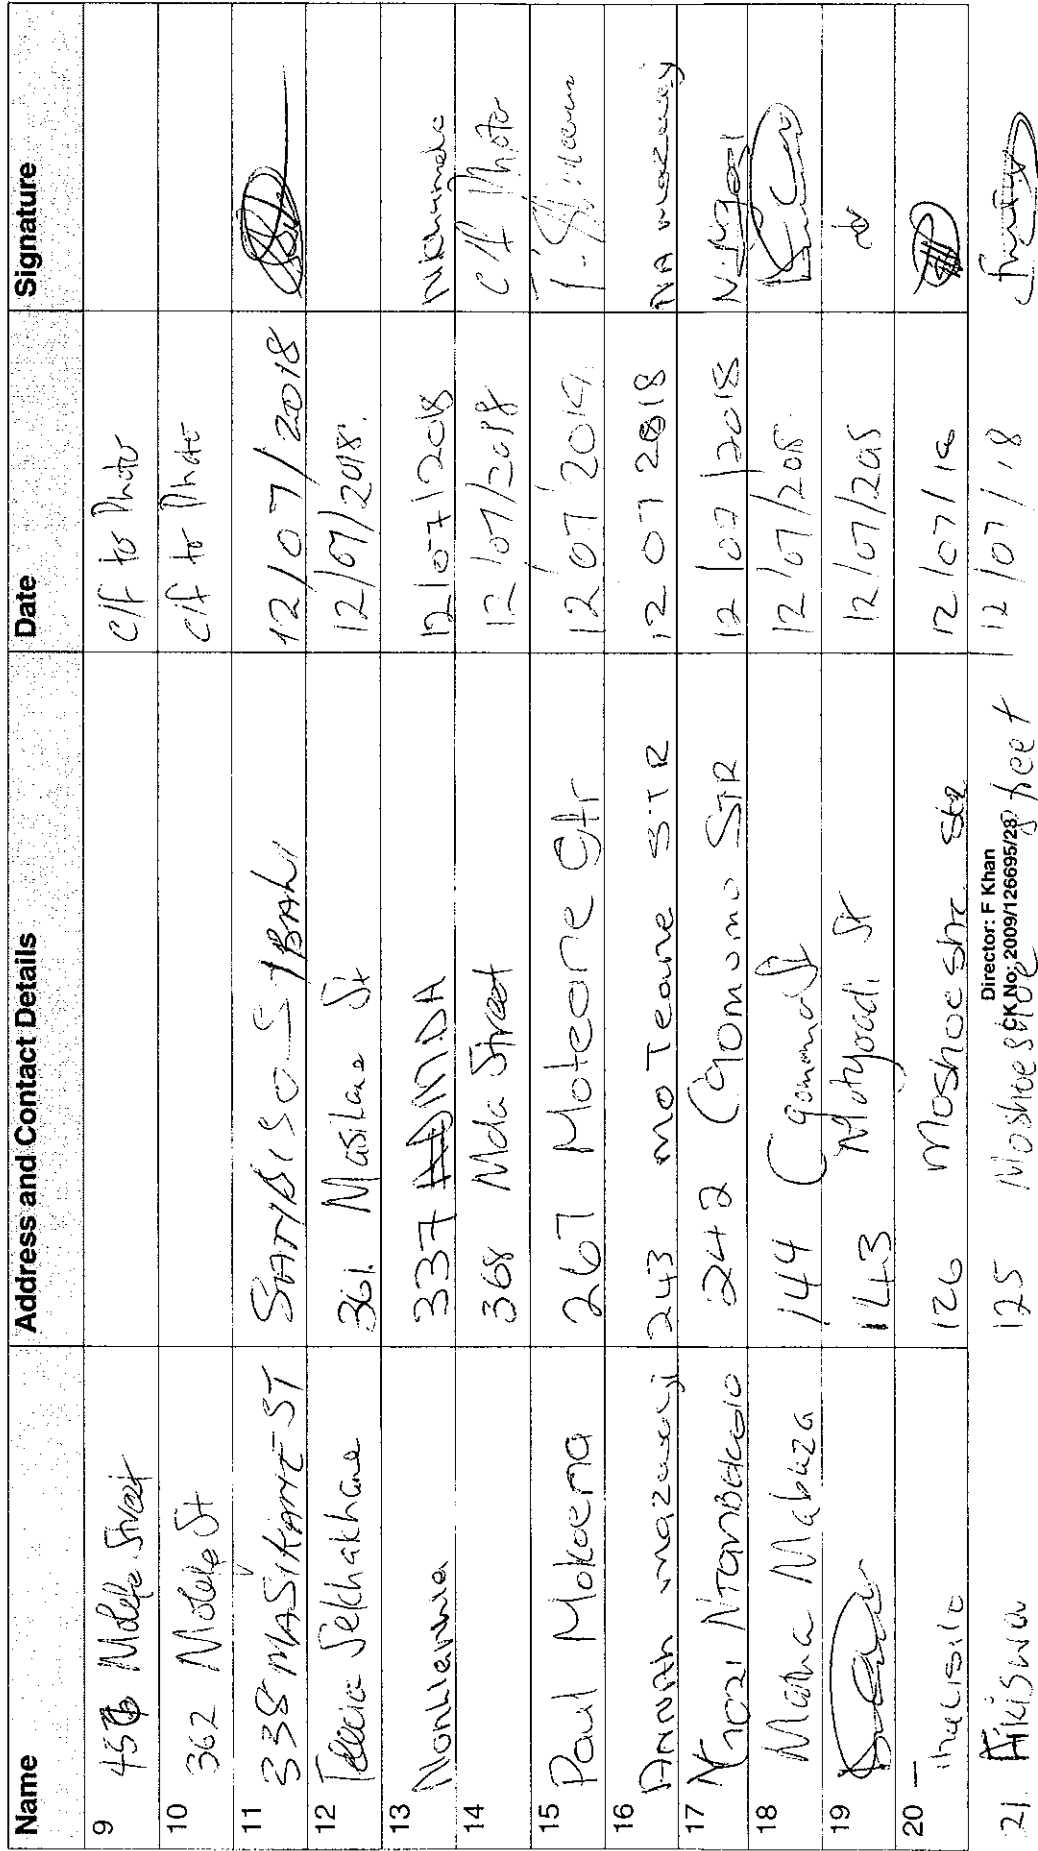 Name Address and Contact Details Date Signature
9 456 Molefe Street c/f to Photo
10 362 Molefe St c/f to Photo
11 338 MASIKANE ST SOMBISO SIBANI 12/07/2018
12 Felicia Sekhakhane 361. Masikane St 12/07/2018.
13 Nonhlanhla 337 MDA 12/07/2018
14 368 Mda Street 12/07/2018 c/f Photo
15 Paul Mokoena 267 Moteane Str 12/07/2019
16 ANNAH mazwayi 243 moTeane STR 12 07 2018 NA mazwayi
17 242 Cgomomo STR 12/07/2018
18 Martha Mabuza 144 Cgomomo St 12/07/2018
19 143 St 12/07/2018
20 126 Moshoeshoe Str 12/07/18
21. Fikiswa 125 Moshoeshoe Street 12/07/18
Director: F Khan
CK No: 2009/126695/28